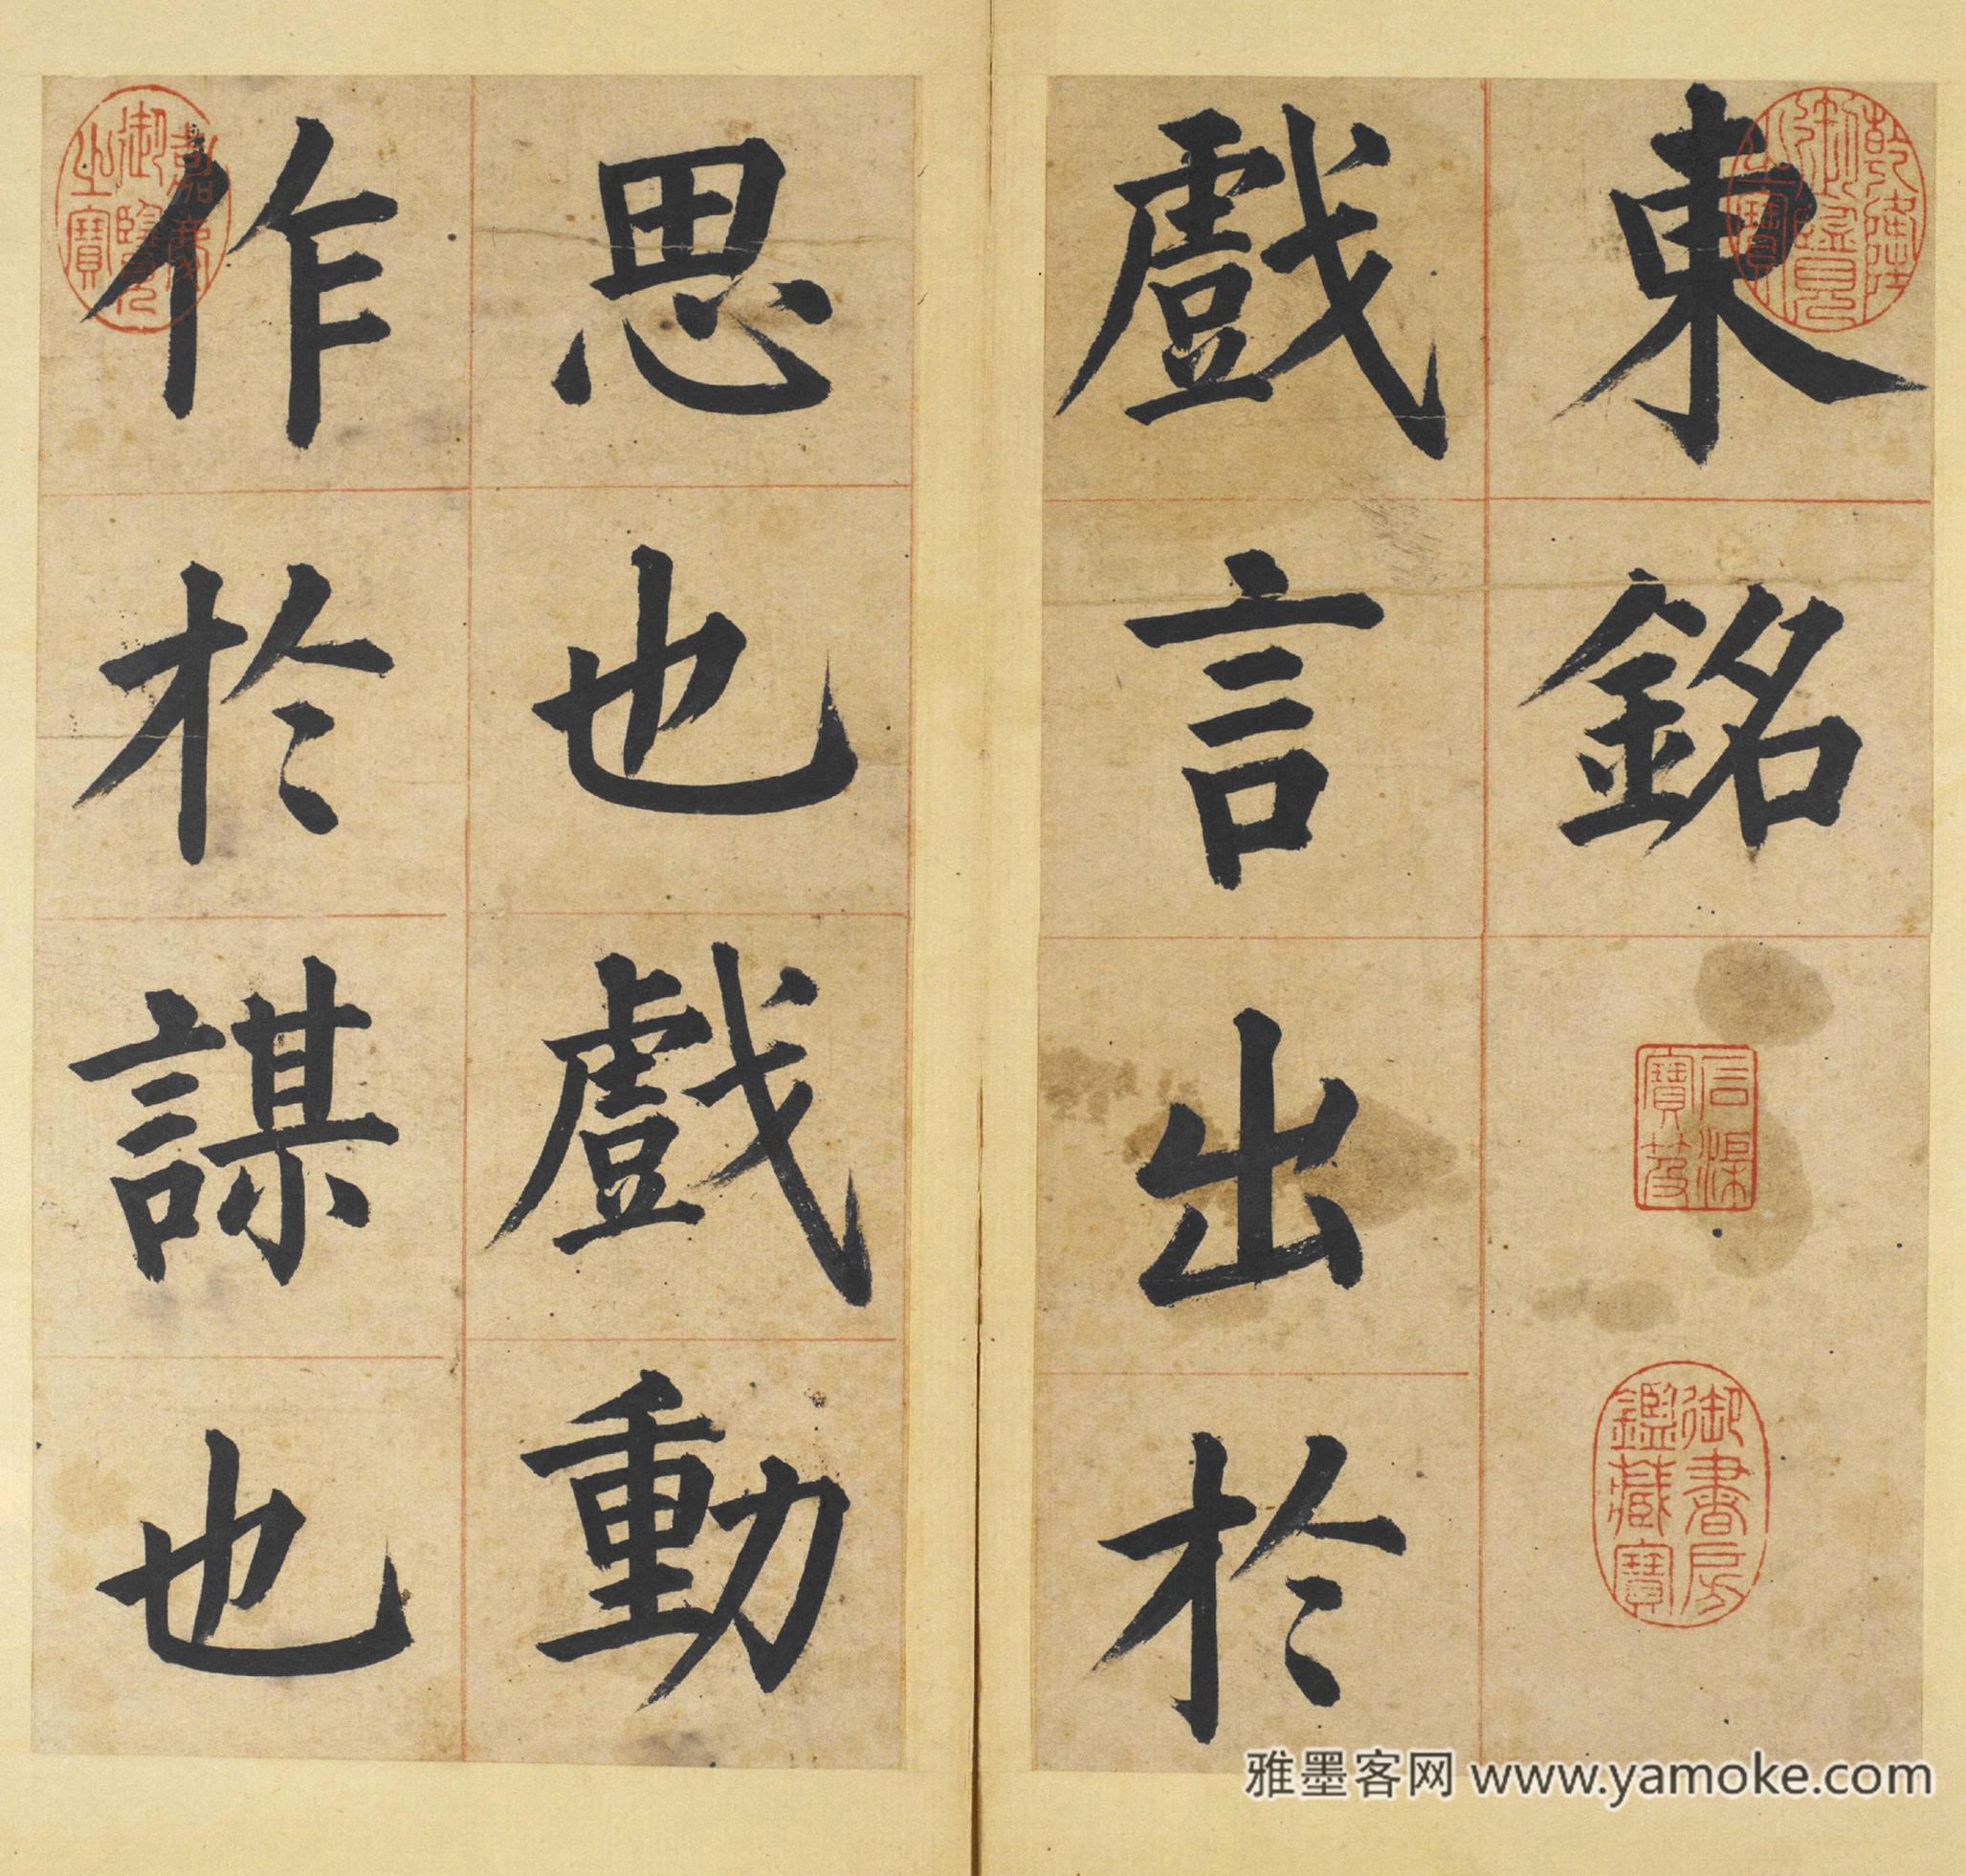 東銘
戲言出於
思也戲動
作於謀也
乾隆御覽之寶
信渠寶笈
御書房鑑藏寶
嘉慶御覽之寶
雅墨客网 www.yamoke.com